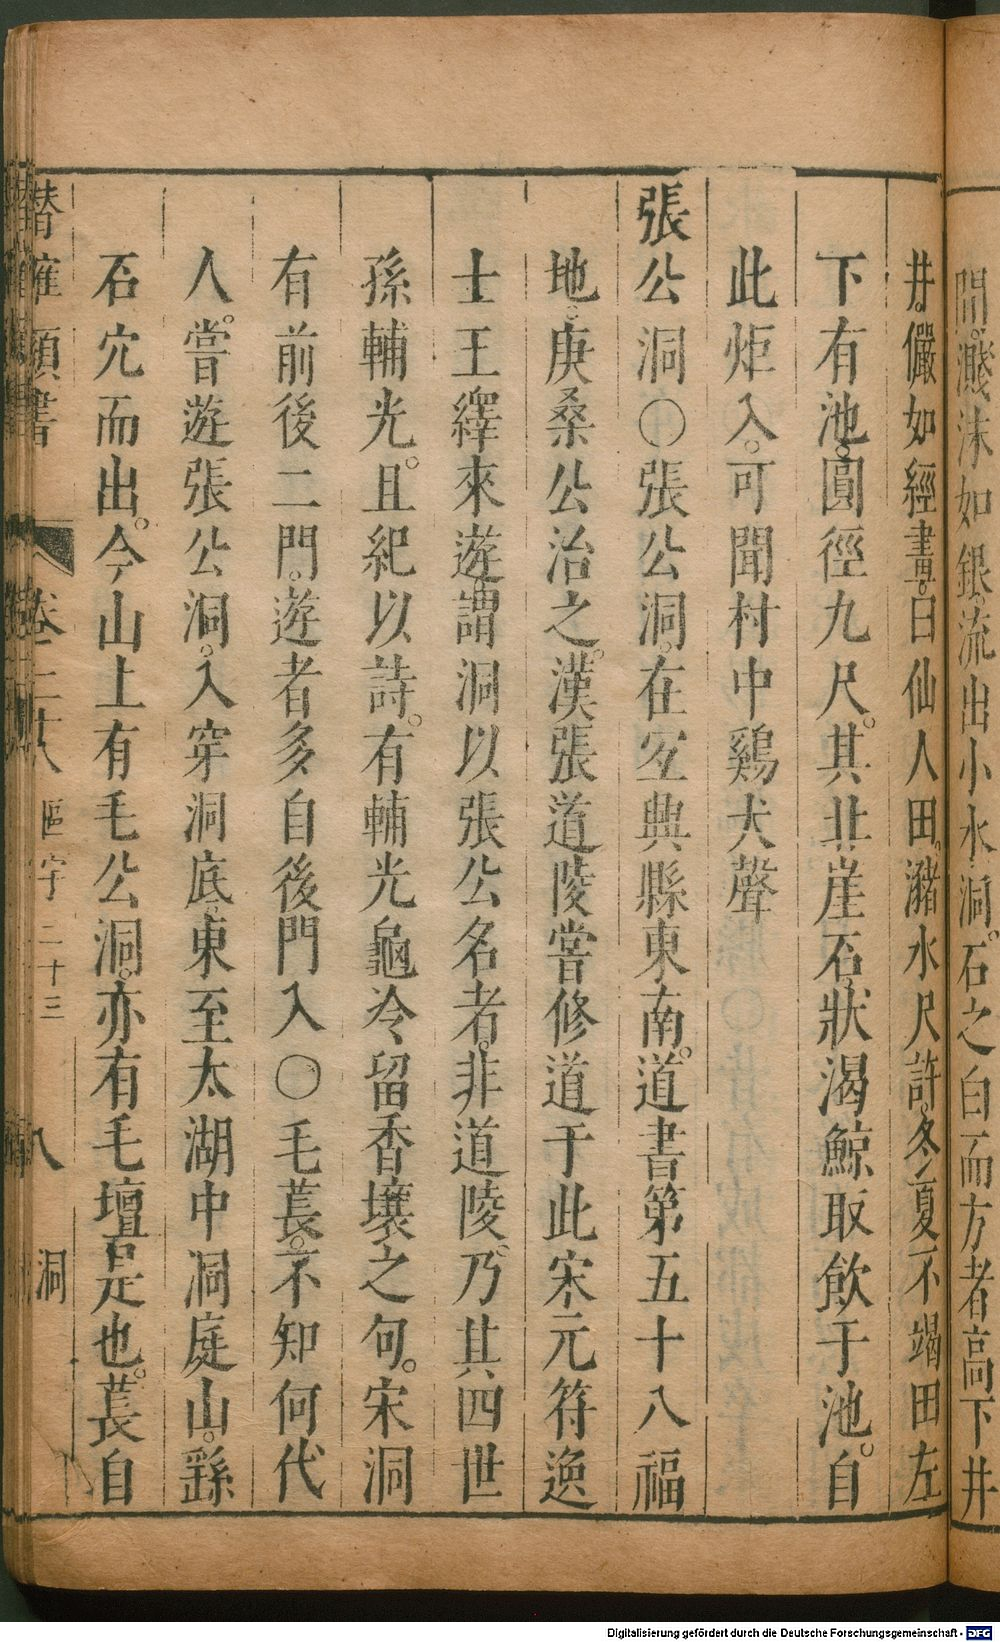 間。濺沫如銀。流出小水洞。石之白而方者高下井
井。儼如經畫。曰仙人田。瀦水尺許。冬夏不竭田左
下有池。圓徑九尺。其北崖石。狀渴鯨取飲于池。自
此炬入。可聞村中鷄犬聲
張公洞〇張公洞。在宐興縣東南。道書第五十八福
地。庚桑公治之。漢張道陵嘗修道于此宋元符逸
士王繹來遊謂洞以張公名者。非道陵。乃其四世
孫輔光。且紀以詩。有輔光龜冷留香壤之句。宋洞
有前後二門。遊者多自後門入〇毛萇。不知何代
人。嘗遊張公洞。入穿洞底。東至太湖中洞庭山。繇
石穴而出。今山上有毛公洞。亦有毛壇是也。萇自
潛確類書 卷二十八 區宇二十三 八 洞
Digitalisierung gefördert durch die Deutsche Forschungsgemeinschaft - DFG